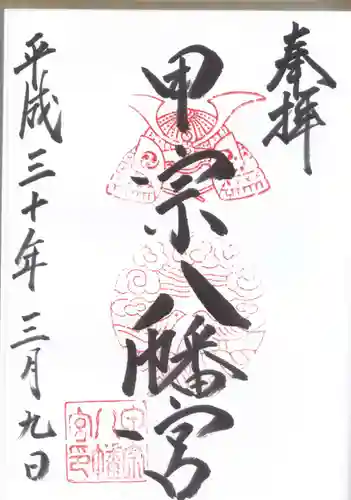 奉拝
甲宗八幡宮
平成三十年三月九日
甲宗八幡宮印